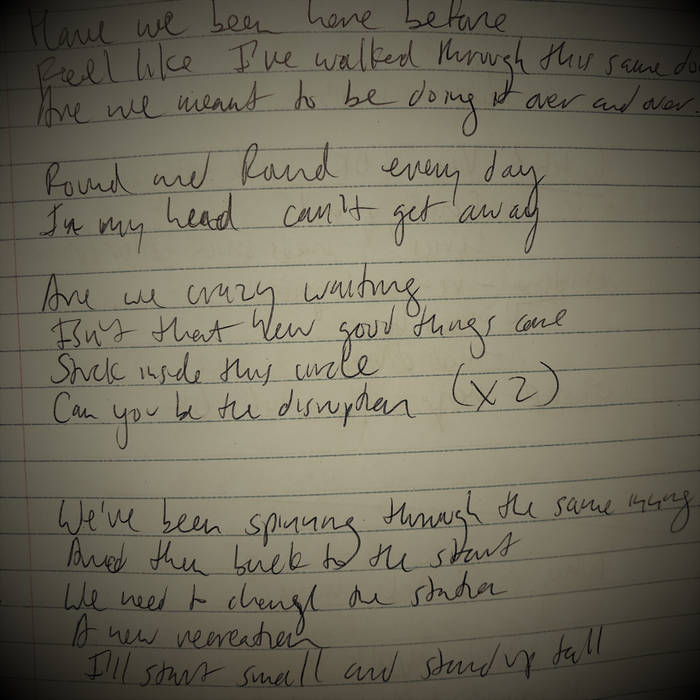 Have we been here before
Feel like I've walked through this same do
Are we meant to be doing it over and over
Round and Round every day
In my head can't get away
Are we crazy waiting
Isn't that how good things come
Stuck inside this circle
Can you be the disruption (x2)
We've been spinning through the same
And then back to the start
We need to change the station
A new recreation
I'll start small and stand up tall